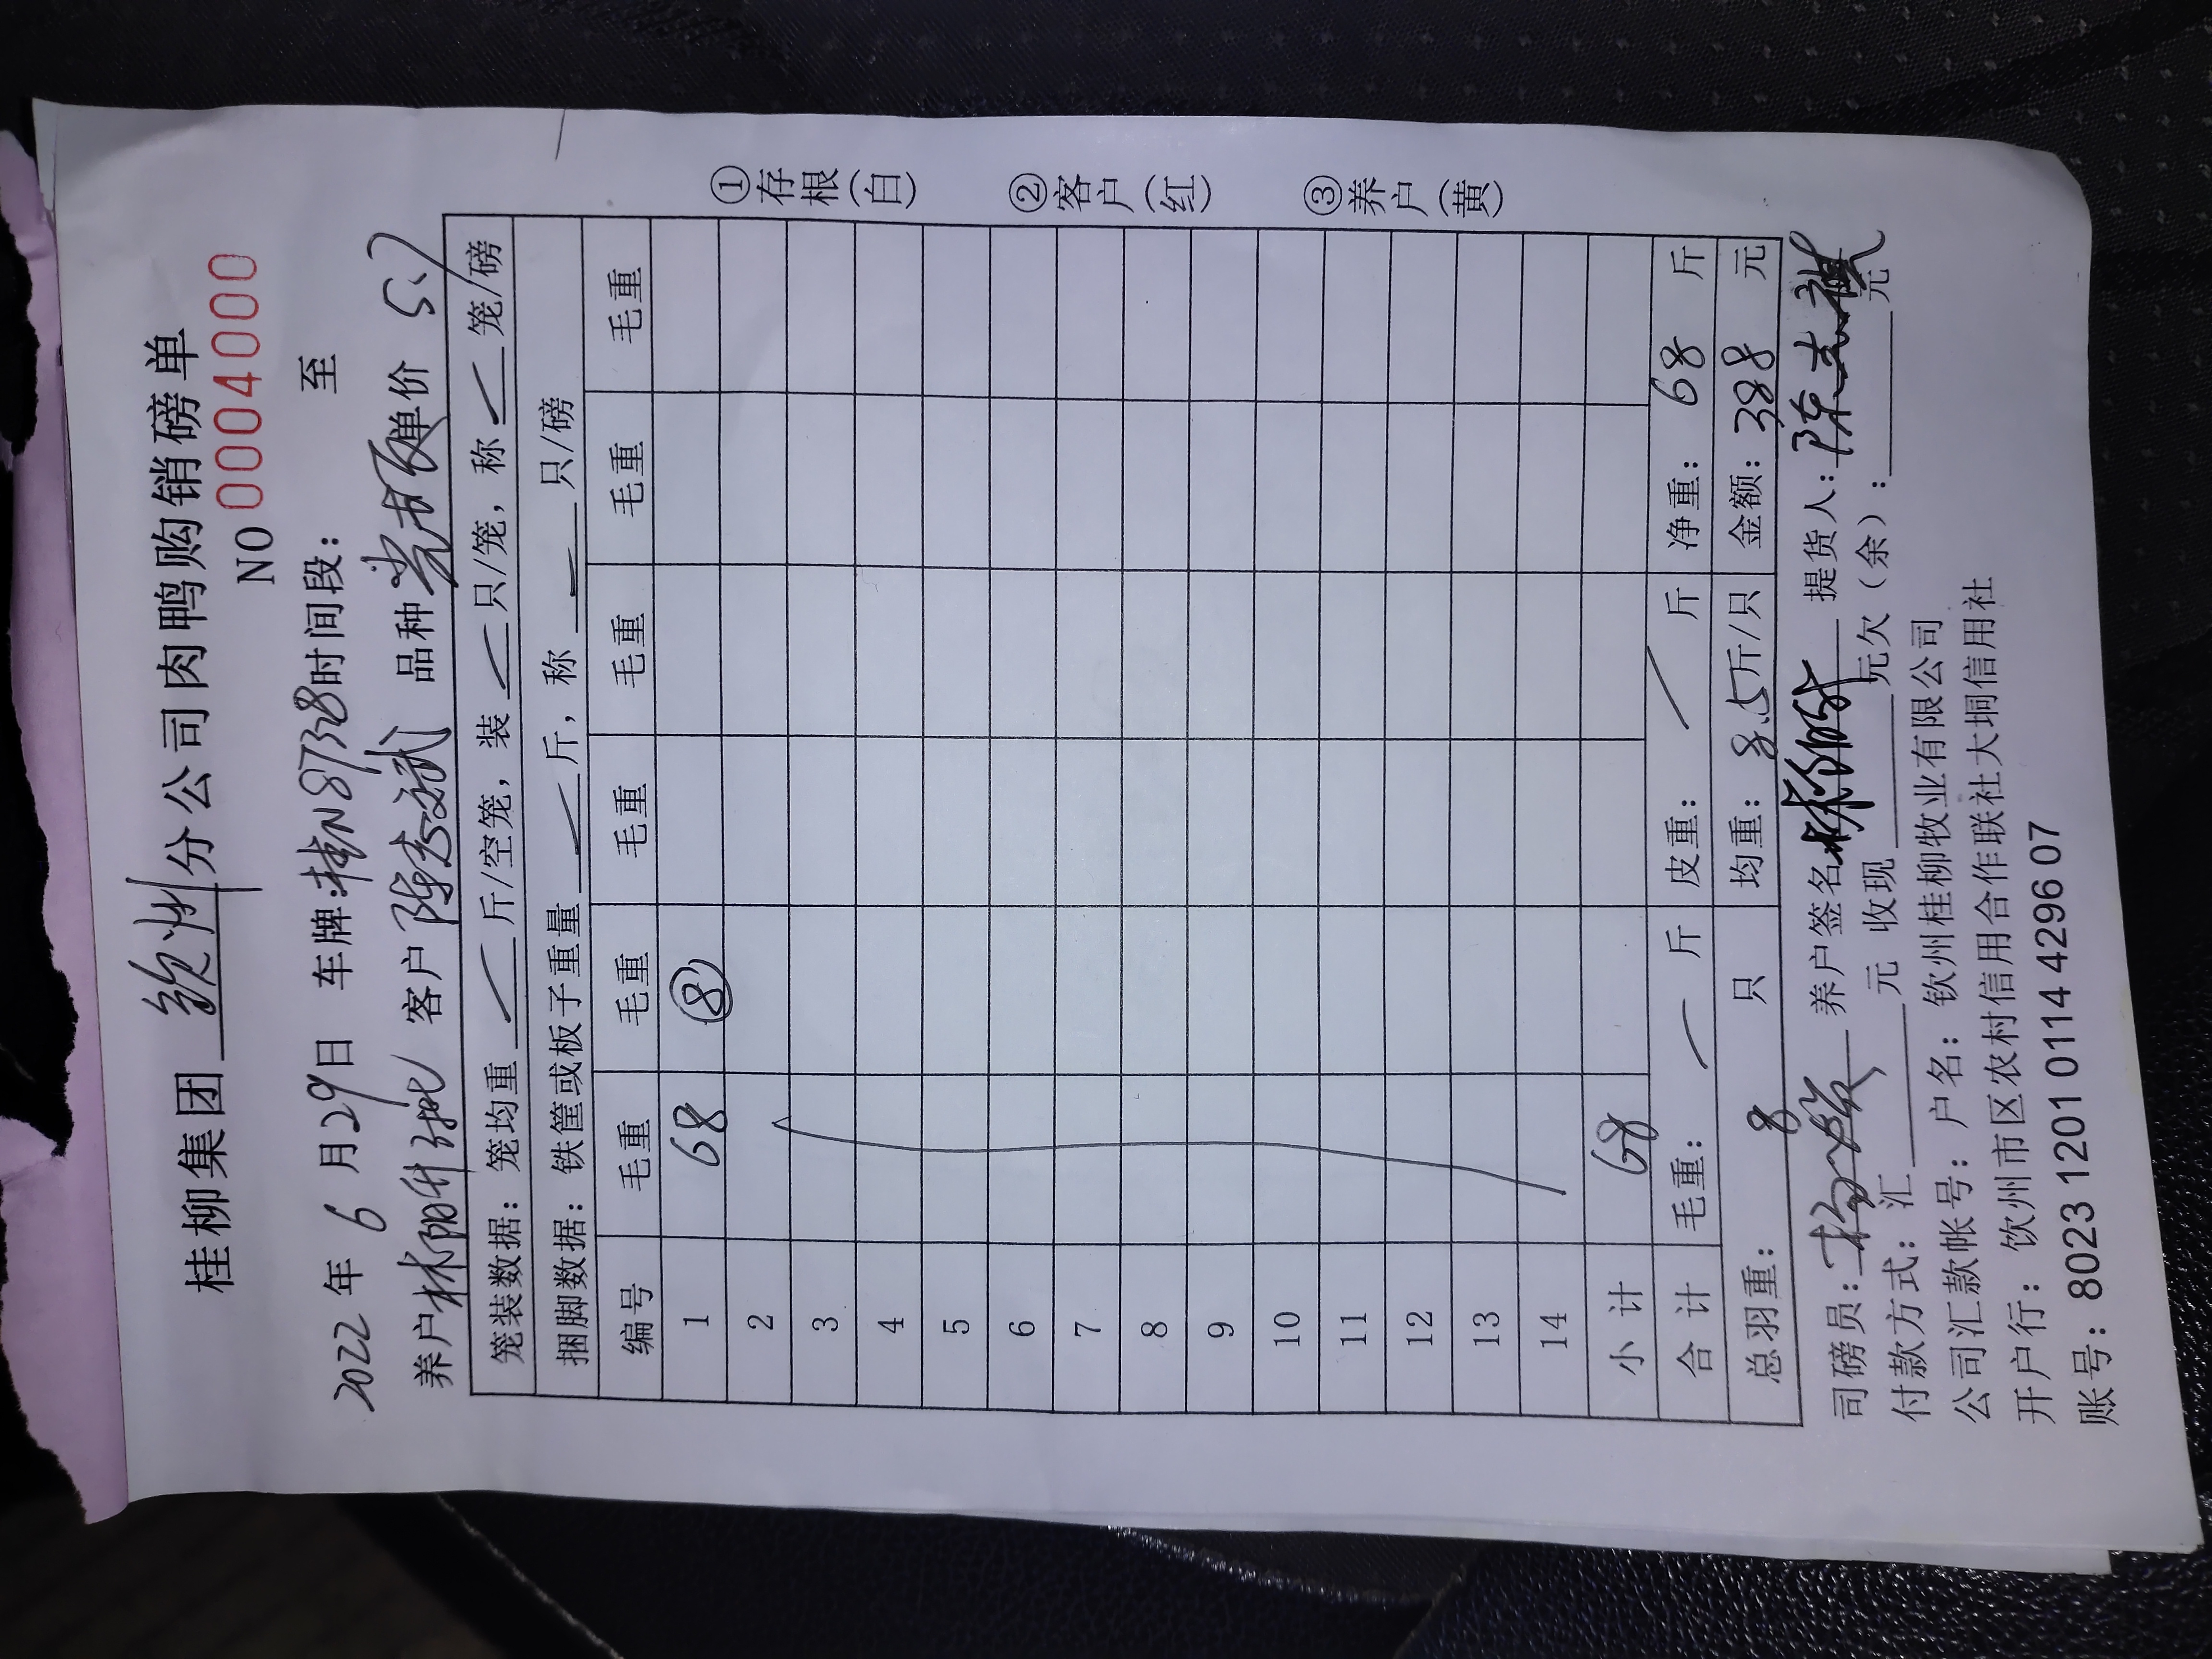 桂柳集团 钦州 分公司肉鸭购销磅单
NO 0004000
2022 年 6 月 29 日 车牌:桂N8T328 时间段: 至
养户 客户 陈志斌 品种 单价 5.7
笼装数据: 笼均重 斤/空笼, 装 只/笼, 称 笼/磅
捆脚数据: 铁筐或板子重量 斤, 称 只/磅
编号 毛重 毛重 毛重 毛重 毛重 毛重
1 68 ⑧
2
3
4
5
6
7
8
9
10
11
12
13
14
小 计 68
合 计 毛重: 斤 皮重: 斤 净重: 68 斤
总羽重: 8 只 均重: 8.5 斤/只 金额: 388 元
司磅员: 养户签名 提货人:
付款方式: 汇 元 收现 元欠（余）: 元
公司汇款帐号: 户名: 钦州桂柳牧业有限公司
开户行: 钦州市区农村信用合作联社大垌信用社
账号: 8023 1201 0114 4296 07
①存根(白)
②客户(红)
③养户(黄)